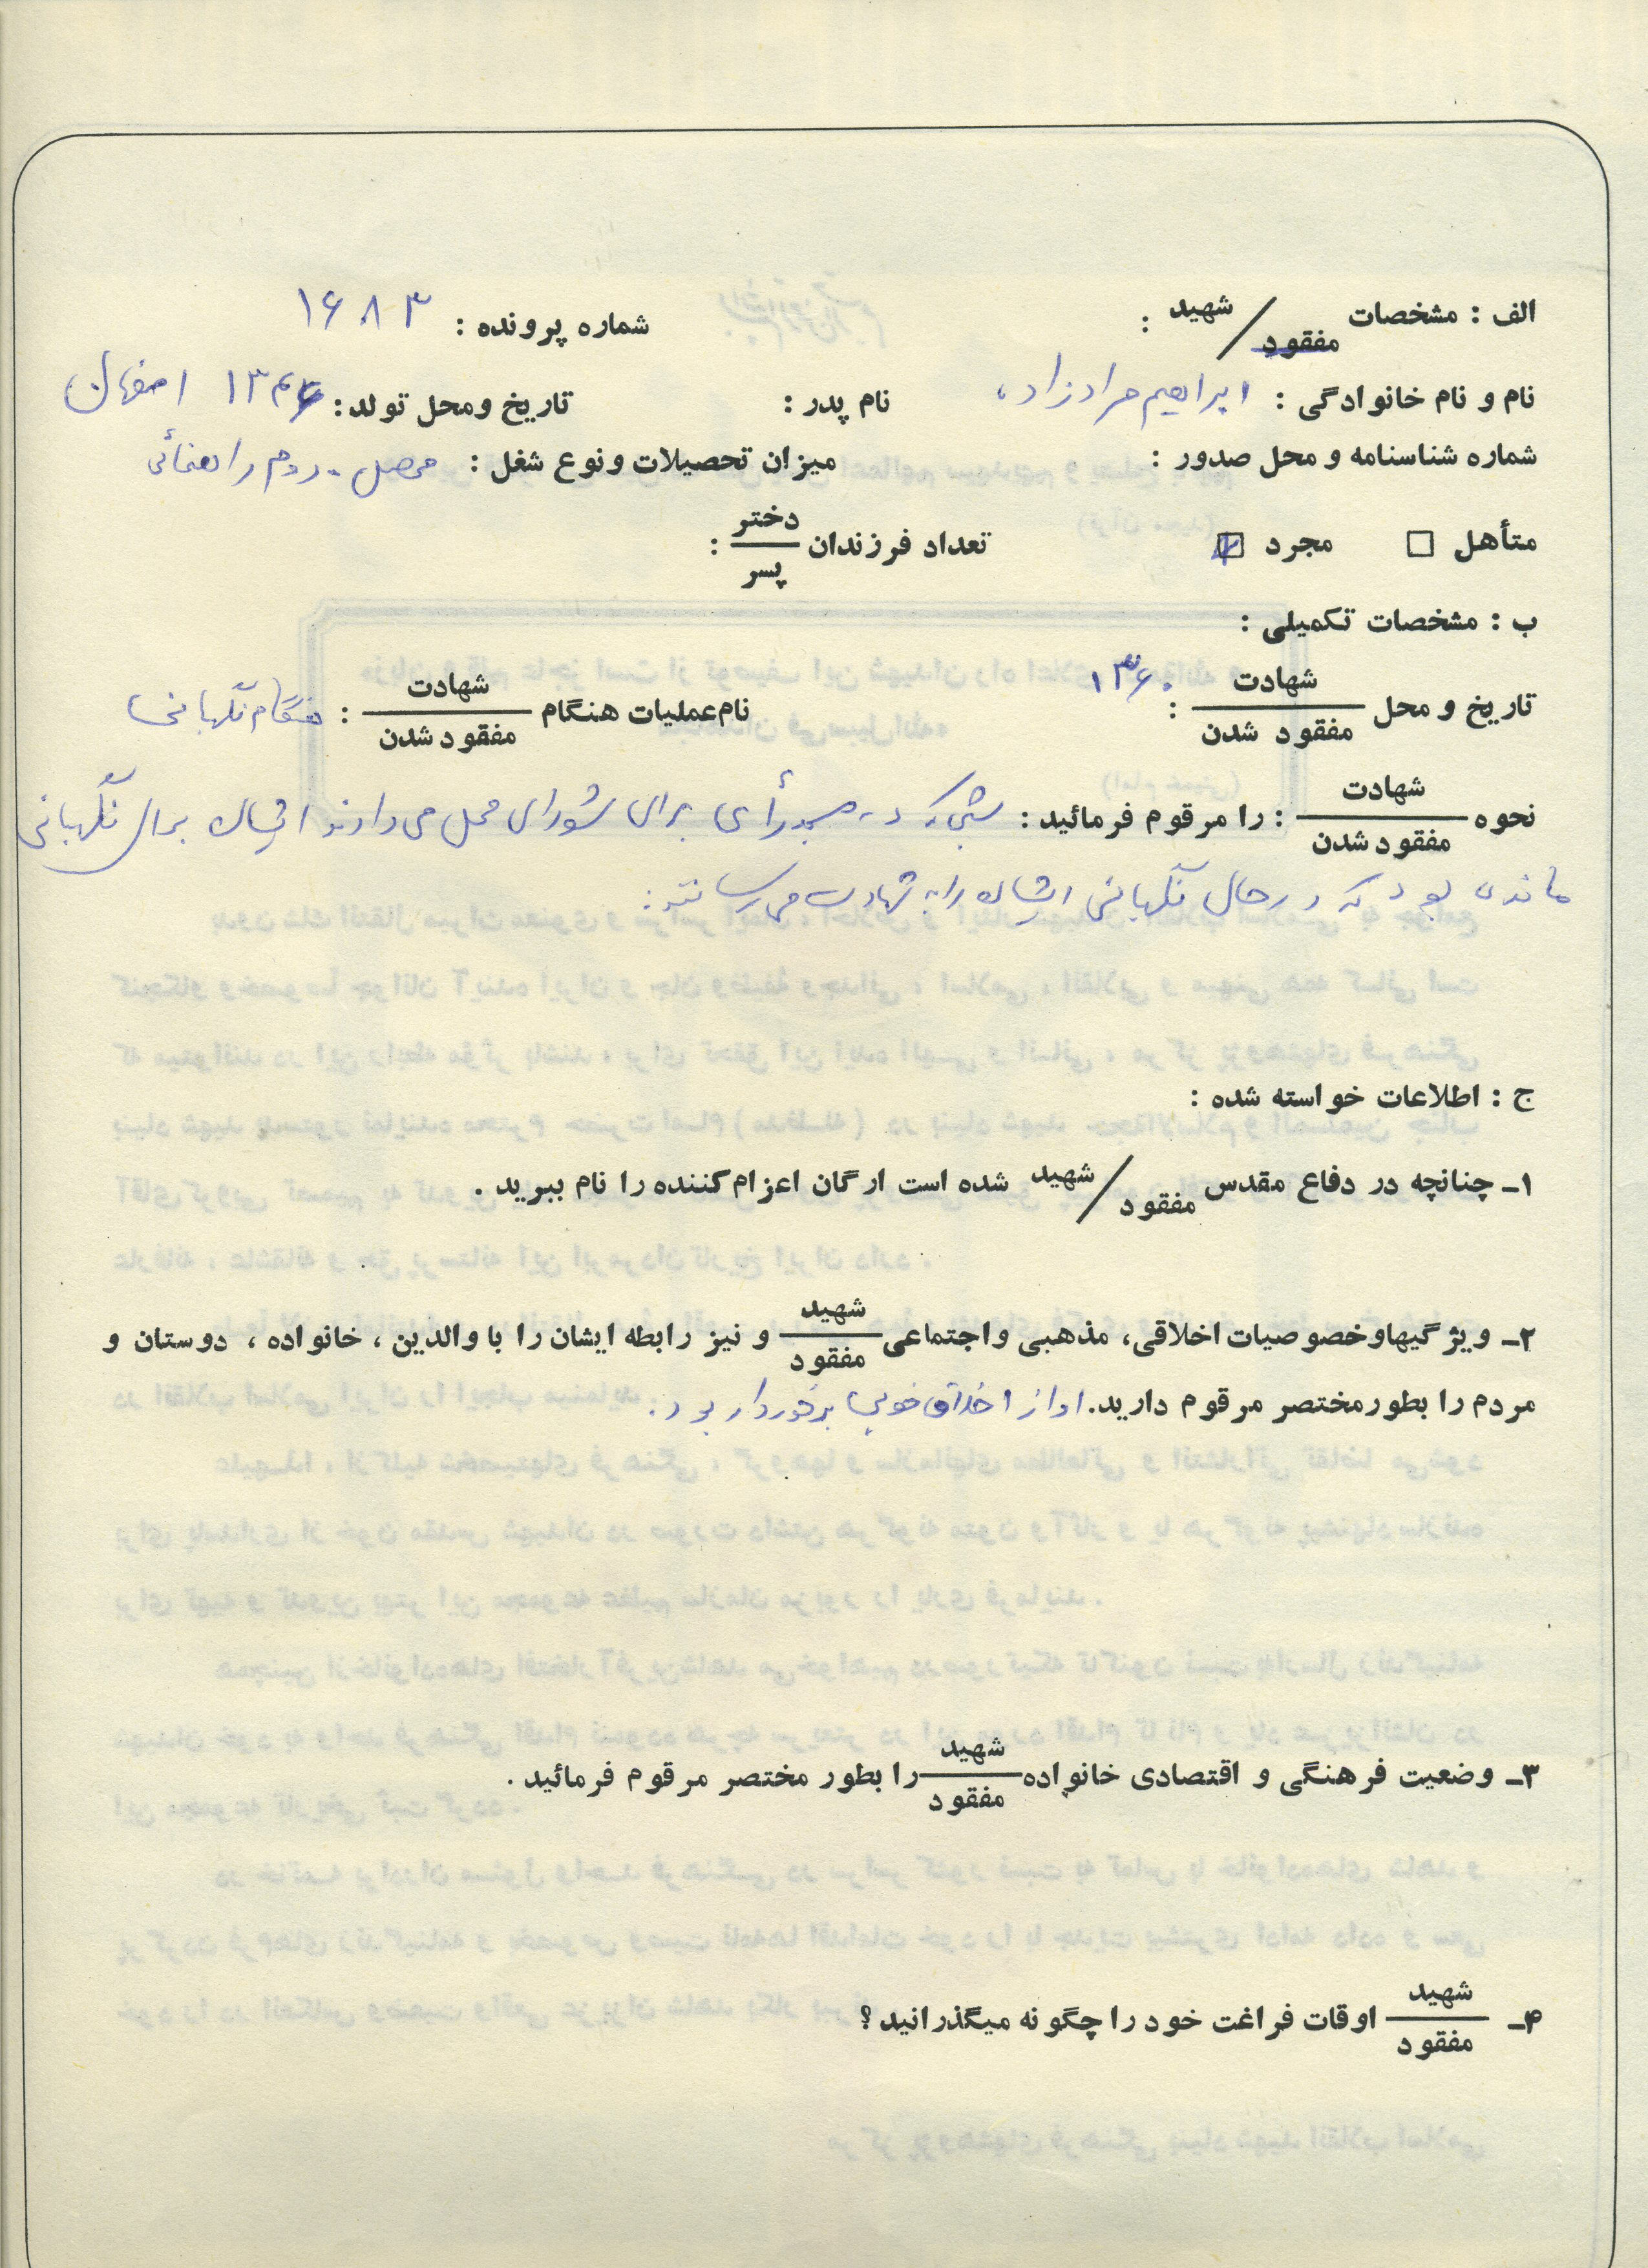 الف : مشخصات شهید / مفقود :
شماره پرونده : ۱۶۸۳
نام و نام خانوادگی : ابراهیم مرادزاده
نام پدر :
تاریخ ومحل تولد : اصفهان
شماره شناسنامه و محل صدور :
میزان تحصیلات ونوع شغل : محصل - دوم راهنمائی
متأهل □ مجرد ☑ تعداد فرزندان دختر / پسر :
ب : مشخصات تکمیلی :
تاریخ و محل شهادت / مفقود شدن : ۱۳۶۰
نام عملیات هنگام شهادت / مفقود شدن : هنگام نگهبانی
نحوه شهادت / مفقود شدن : را مرقوم فرمائید : شبی که در مسجد رأی برای شورای محل می دادند ایشان برای نگهبانی
مانده بود که در حال نگهبانی ایشان را به شهادت می رسانند .
ج : اطلاعات خواسته شده :
۱ـ چنانچه در دفاع مقدس شهید / مفقود شده است ارگان اعزام کننده را نام ببرید .
۲ـ ویژگیهاوخصوصیات اخلاقی، مذهبی واجتماعی شهید / مفقود و نیز رابطه ایشان را با والدین ، خانواده ، دوستان و
مردم را بطور مختصر مرقوم دارید. او از اخلاق خوبی برخوردار بود .
۳ـ وضعیت فرهنگی و اقتصادی خانواده شهید / مفقود را بطور مختصر مرقوم فرمائید .
۴ـ شهید / مفقود اوقات فراغت خود را چگونه میگذرانید ؟